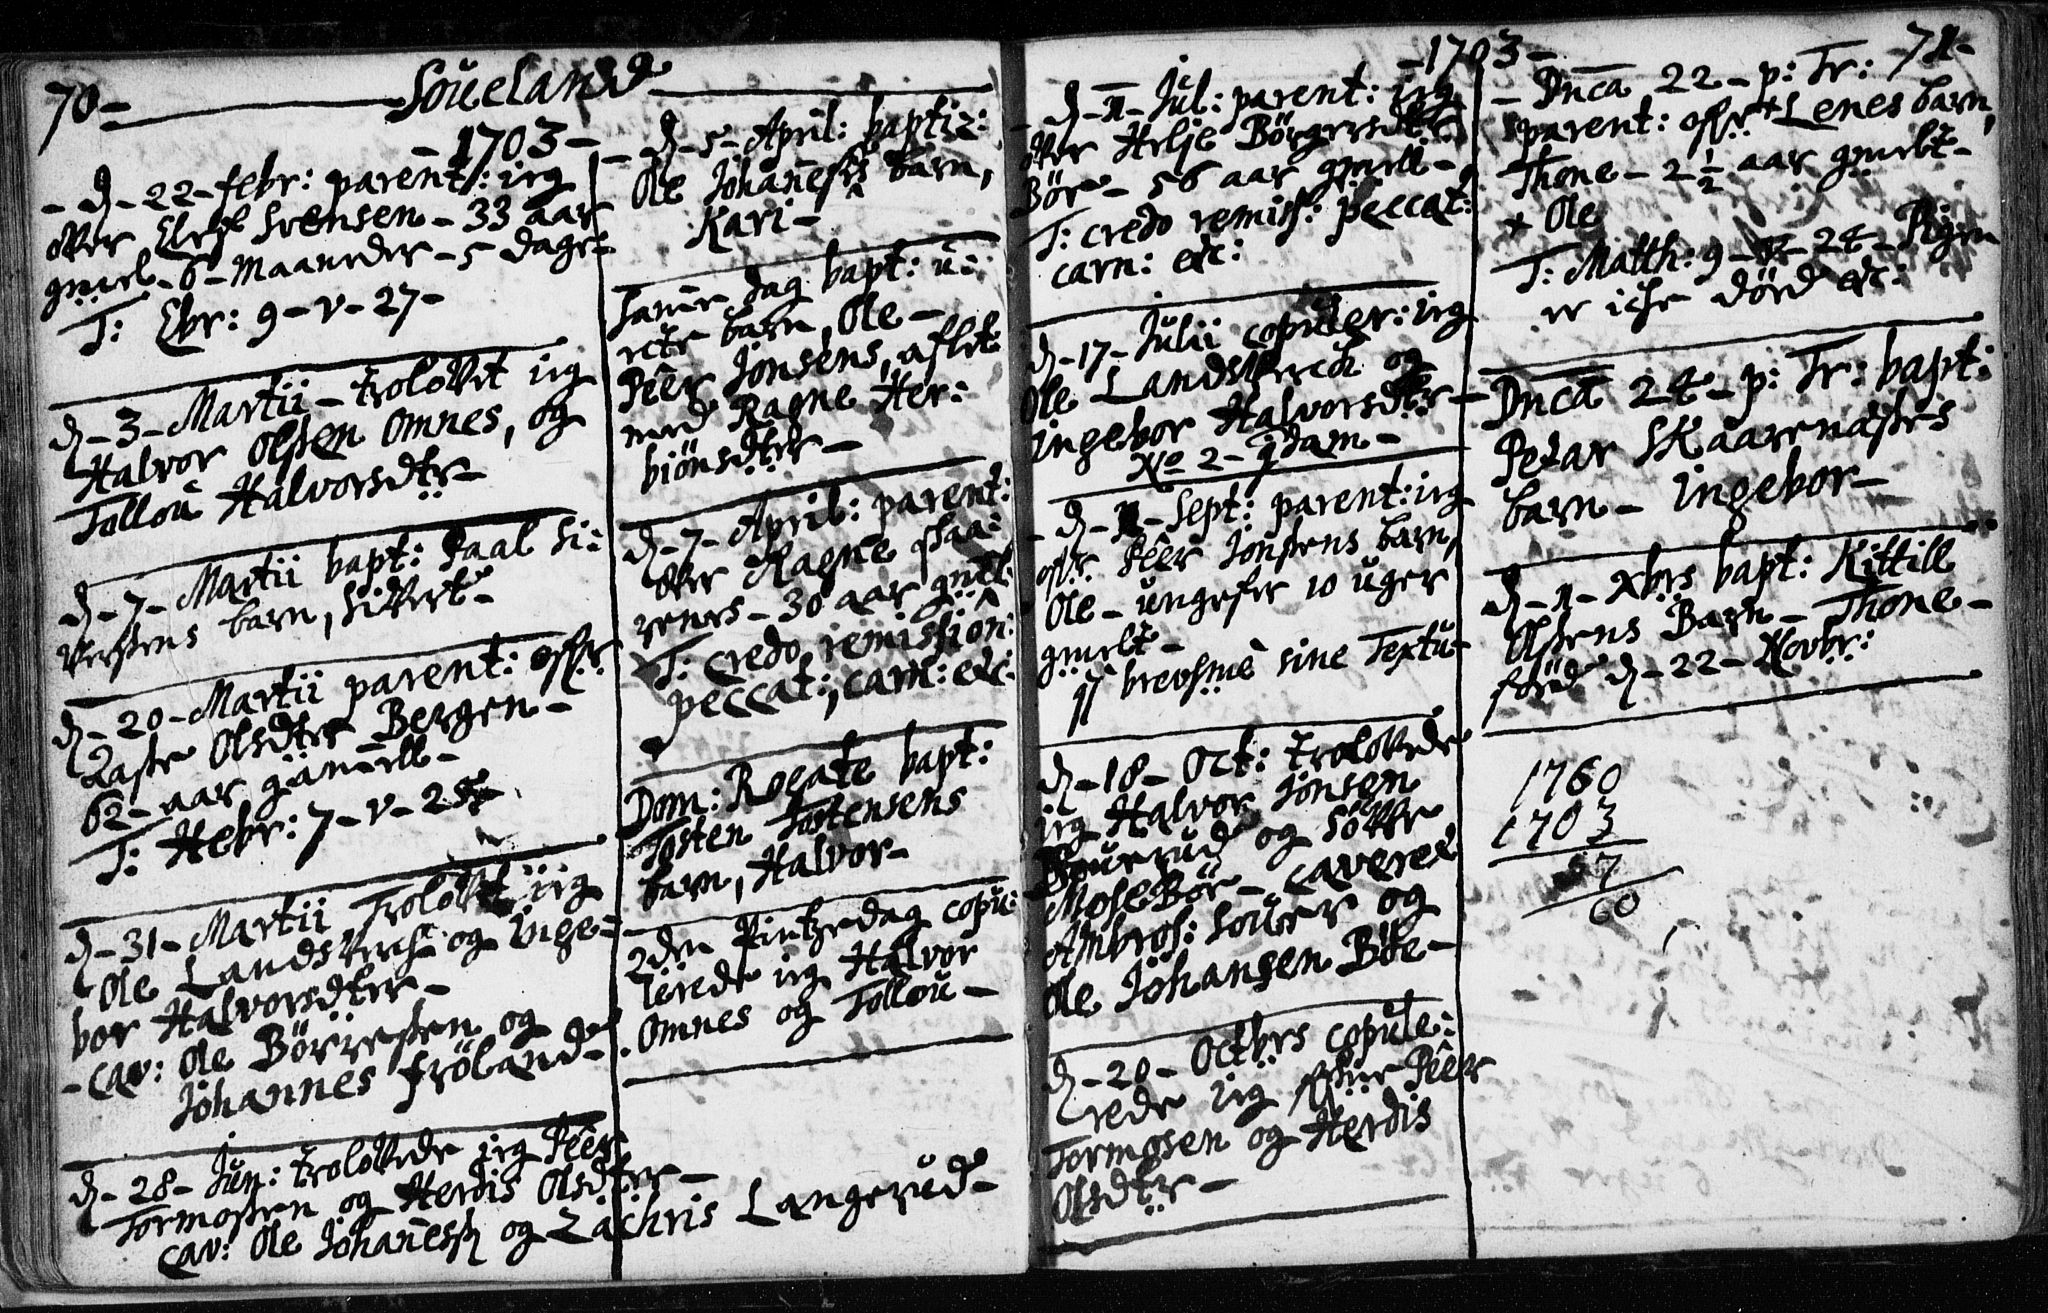 70 - Söueland
- 1703 -
- d - 22 - febr: parent: ieg
ofver Elef Svensen - 33 aar
gmel - 6 - Maaneder - 5 dage -
T: Ebr: 9 - v - 27 -
d - 3 - Martii - trolofvet ieg
Halvor Olssen Omnes, og
Tollou Halvorsdtr -
d - 7 - Martii bapt: Paal Si:
versens barn, Sivert -
d - 20 - Martii parent: offr
Aasse Olsdter Bergen -
62 - aar gammell -
T: Hebr: 7 - v - 25
d - 31 - Martii Trolofvet ieg
Ole Landsverch og Inge =
bor Halvorsdter -
- Cav: Ole Börressen og
Johannes Fröland -
d - 28 - Jun: trolofvede ieg Pêer
Tormossen og Herdis Olsdter -
cav: Ole Johaness og Zachris Langerud -
- d - 5 - April: baptiz:
Ole Johaness barn,
Kari -
Samme dag bapt: u:
ecte barn, Ole -
Pêer Jonsens, aflet
med Ragne Her:
biönsdter -
d - 7 - April: parent:
ofver Ragne Skaa:
renes - 30 aar gmel
T: Credo remission:
peccat:, carn: etc:
Dom: Rogate bapt:
Tosten Tostensens
barn, Halvor -
2den Pintzedag copu:
lerede ieg Halvor
Omnes og Tollou -
- 1703 - 71 -
- d - 1 - Jul: parent: ieg
ofver Helje Börgersdter
Bör - 56 aar gmell -
T: credo remiss: peccat:
carn: etc:
d - 17 - Julii copuler: ieg
Ole Landsverch og
Ingebor Halvorsdter -
No 2 - qdam -
- d - 1 - Sept: parent: ieg
ofvr Pêer Jonssens barn,
Ole - ungefer 10 uger
gmelt -
brevssme sine Textu -
d - 18 - Oct: trolofvede
ieg Halvor Jonsen
og Söfver
MoseBör - caveret
Ambros: Souer og
Ole Johansen Böe -
d - 20 - Octbrs copule:
rede ieg Pêer
Tormosen og Herdis
Olsdter -
- Dnca 22 - p: Tr:
parent: offr Lenes barn,
Thone - 2 1/2 aar gmelt -
+ Ole
T: Matth: 9 - v - 24 - Pigen
er iche död etc:
Dnca 24 - p: Tr: bapt:
Pedar Skaarnasses
barn - Ingebor -
d - 1 - Xbrs bapt: Kittill
Olssens Barn - Thone -
föd d - 22 - Novbr:
1760
1703
57
60